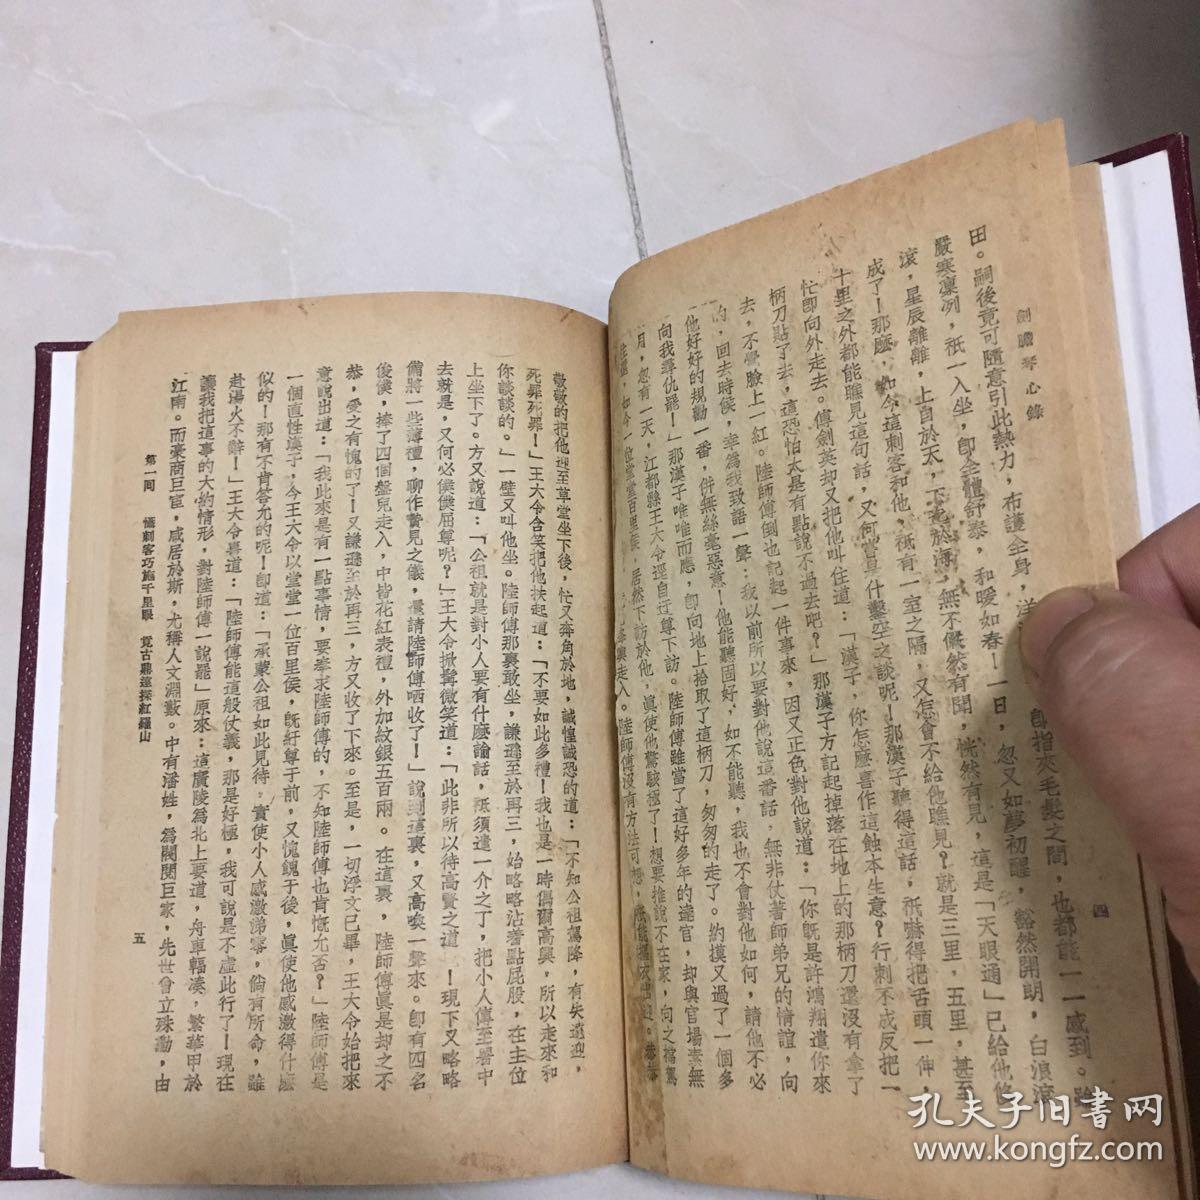 劍膽琴心錄
四
卽指夾毛髮之間，也都能一一感到。
田。嗣後竟可隨意引此熱力，布護全身，洋
嚴寒凜冽，祇一入坐，卽全體舒泰，和暖如春！一日，忽又如夢初醒，豁然開朗，白浪滾
滾，星辰離離，上自於天，下達於海，無不儼然有聞，恍然有見，這是「天眼通」已給他修
成了！那麼，如今這刺客和他，祇有一室之隔，又怎會不給他瞧見？就是三里，五里，甚至
十里之外都能瞧見這句話，又何嘗具什鑿空之談呢！那漢子聽得這話，祇嚇得把舌頭一伸，
忙卽向外走去。傅劍英却又把他叫住道：「漢子，你怎麼喜作這蝕本生意？行刺不成反把一
柄刀貼了去，這恐怕太是有點說不過去吧？」那漢子方記起掉落在地上的那柄刀還沒有拿了
去，不覺臉上一紅。陸師傅倒也記起一件事來，因又正色對他說道：「你旣是許鴻翔遣你來
的，回去時候，幸為我致語一聲：我以前所以要對他說這番話，無非仗著師弟兄的情誼，向
他好好的規勸一番，併無絲毫惡意！他能聽固好，如不能聽，我也不會對他如何，請他不必
向我尋仇罷！」那漢子唯唯而應，卽向地上拾取了這柄刀，匆匆的走了。約摸又過了一個多
月，忽有一天，江都縣王大令逕自行尊下訪。陸師傅雖當了這好多年的達官，却與官場素無
，如今一位堂堂百里侯，居然下訪於他，眞使他驚駭極了！想要推說不在家，向之擋駕
走入。陸師傅沒有方法可想，
敬敬的把他迎至草堂坐下後，忙又奔角於地，誠惶誠恐的道：「不知公祖駕降，有失遠迎，
死罪死罪！」王大令含笑把他扶起道：「不要如此多禮！我也是一時偶爾高興，所以走來和
你談談的。」一壁又叫他坐。陸師傅那裏敢坐，謙遜至於再三，始略略沾著點屁股，在主位
上坐下了。方又說道：「公祖就是對小人要有什麼諭話，祇須遣一介之丁，把小人傳至署中
去就是，又何必僕僕屈尊呢？」王大令掀髯微笑道：「此非所以待高賢之道！現下又略略
備將一些薄禮，聊作贄見之儀，還請陸師傅哂收了！」說到這裏，又高喚一聲來。卽有四名
後僕，捧了四個盤兒走入，中皆花紅表禮，外加紋銀五百兩。在這裏，陸師傅眞是却之不
恭，受之有愧的了！又謙遜至於再三，方又收了下來。至是，一切浮文已畢，王大令始把來
意說出道：「我此來是有一點事情，要奉求陸師傅的，不知陸師傅也肯慨允否？」陸師傅是
一個直性漢子，今王大令以堂堂一位百里侯，旣紆尊于前，又愧餽于後，眞使他感激得什麼
似的！那有不肯答允的呢！卽道：「承蒙公祖如此見待，實使小人感激涕零，倘有所命，雖
赴湯火不辭！」王大令喜道：「陸師傅能這般仗義，那是好極，我可說是不虛此行了！現在
讓我把這事的大約情形，對陸師傅一說罷」原來：這廣陵為北上要道，舟車輻湊，繁華甲於
江南。而豪商巨宦，咸居於斯，尤稱人文淵藪。中有潘姓，為閥閱巨家，先世曾立殊勳，由
第一回　懾刺客巧施千里眼　覓古鼎遠探紅羅山
五
孔夫子旧书网
www.kongfz.com